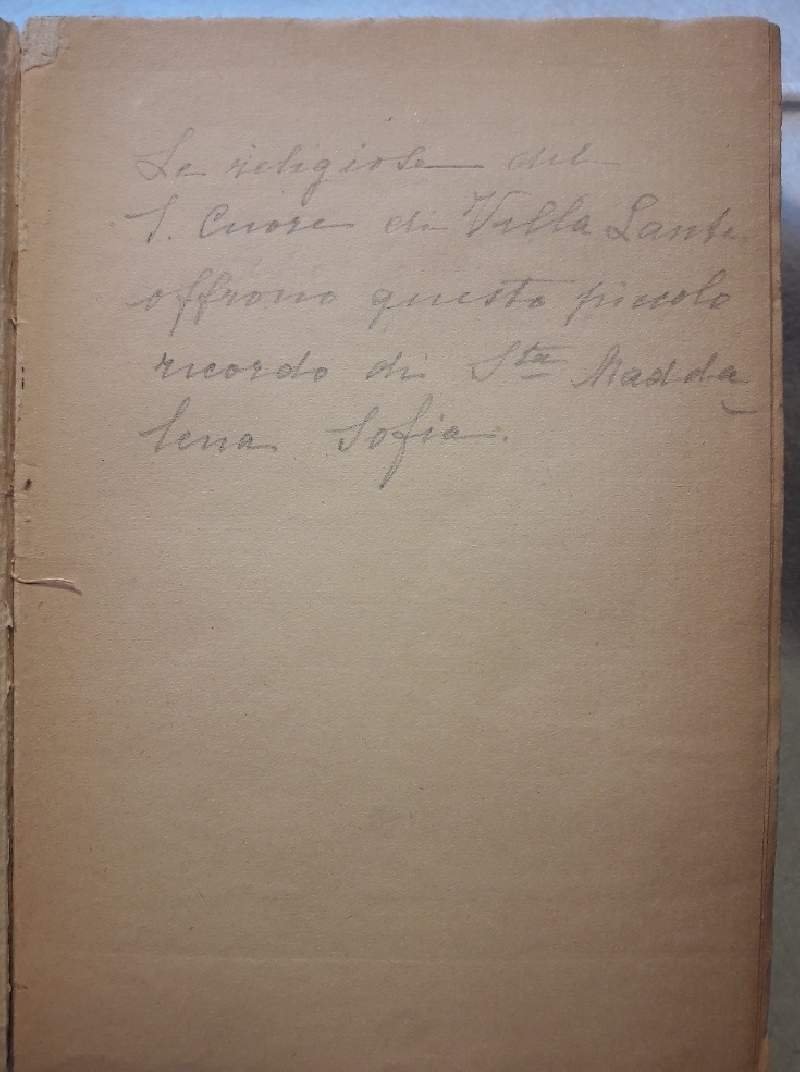 Le religiose del
S. Cuore di Villa Lante
offrono questo piccolo
ricordo di Sta Madda-
lena Sofia.